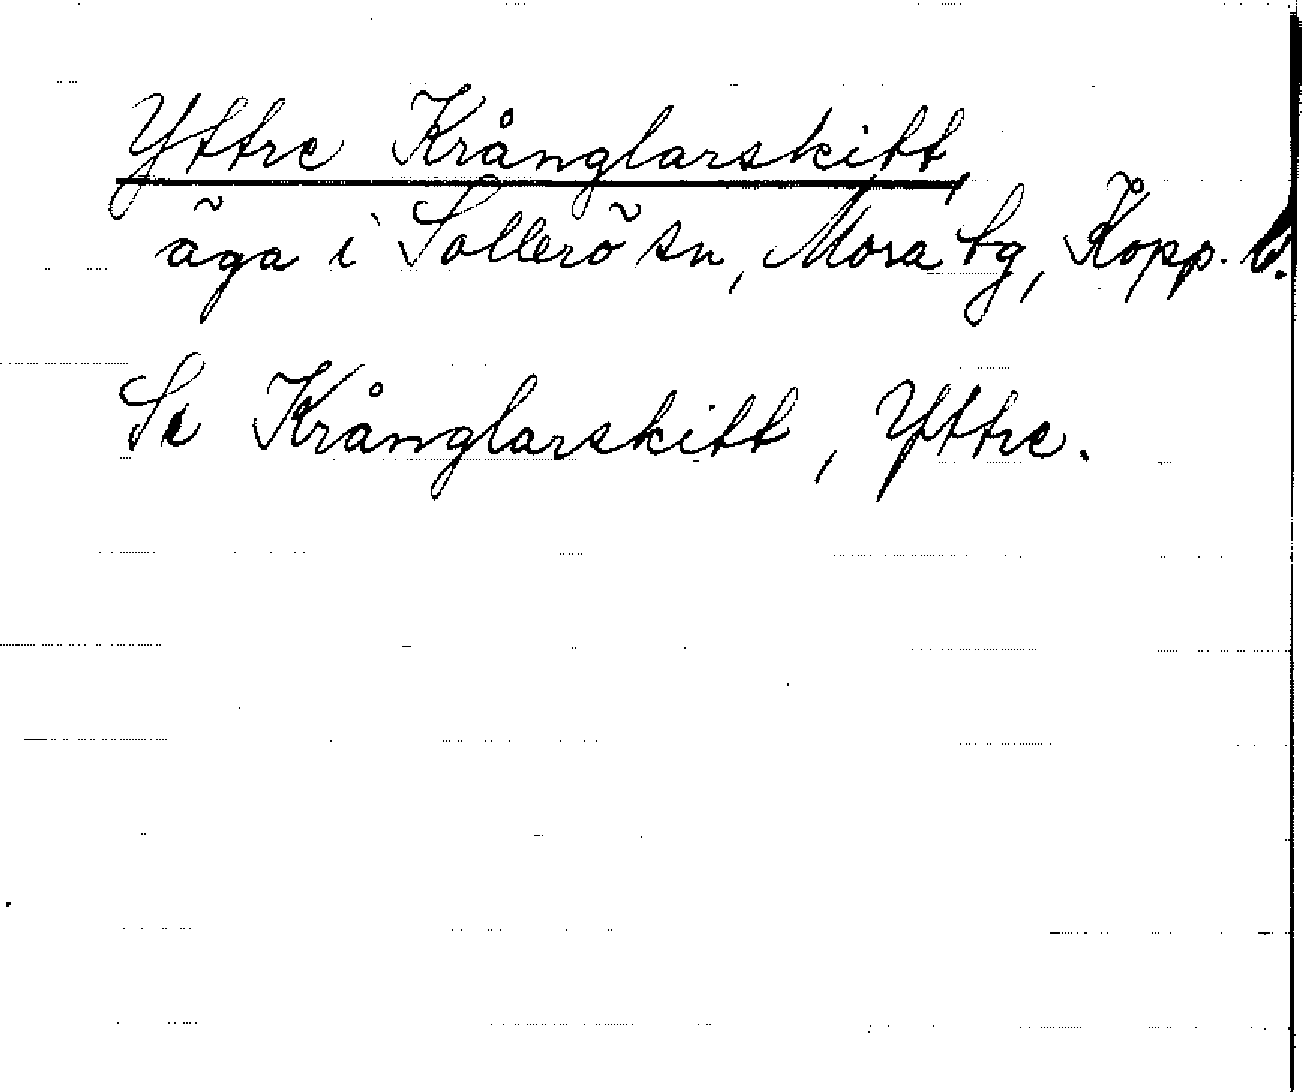 Yttre Krånglarskitt,
äga i Sollerö sn, Mora tg, Kopp. l.
Se Krånglarskitt, Yttre.